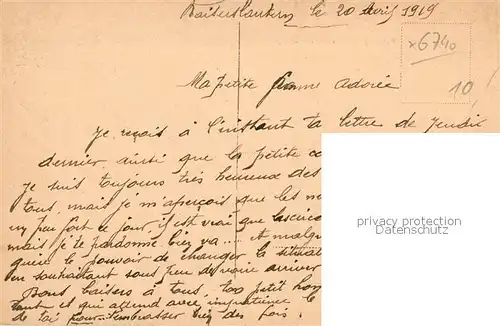 Kaiserslautern le 20 Avril 1919
x6740
10
Ma petite femme adorée
Je reçois à l'instant ta lettre de Jeudi
dernier ainsi que la petite
je suis toujours très heureux des
tous, mais je m'aperçois que les
un peu fort ce jour, il est vrai que
mais je te pardonne bien va... et malgré
guère le pouvoir de changer la situation
en souhaitant sous peu de voir arriver
Bons baisers à tous, ton petit homme
tant et qui attend avec impatience le
de toi pour t'embrasser bien des fois.
privacy protection
www.ansichtskartenversand.com